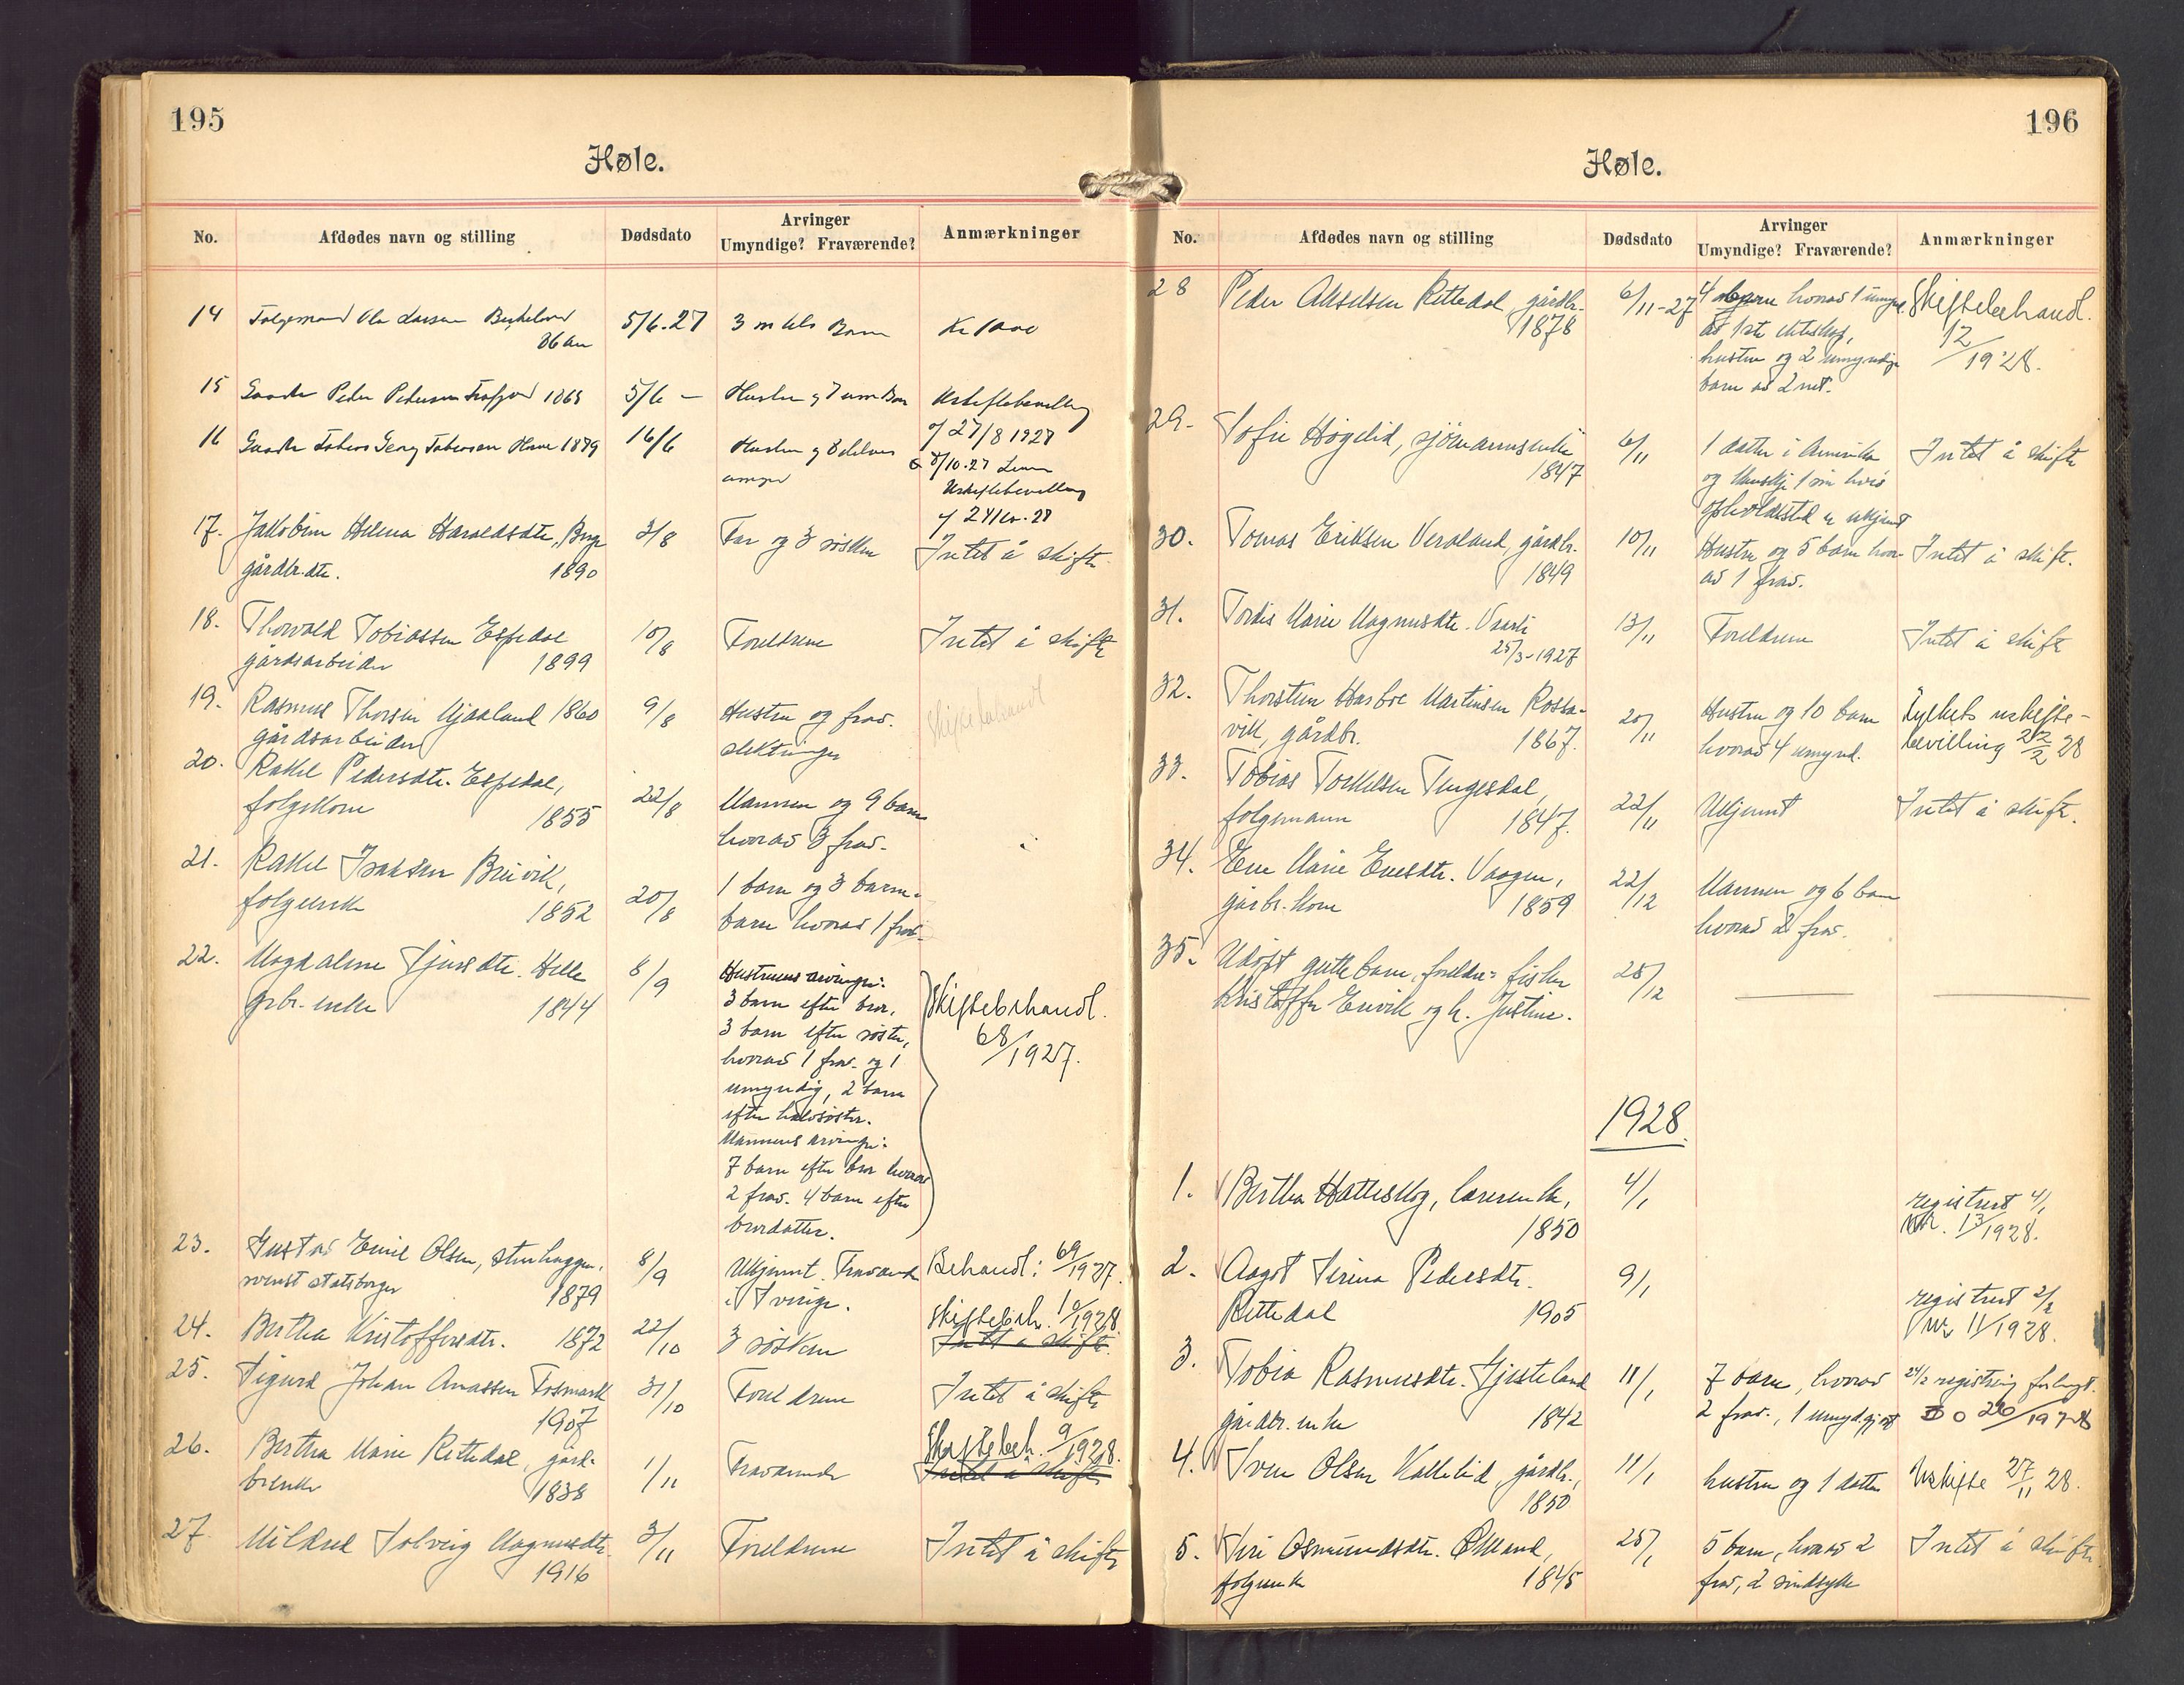 195
Høle.
No. Afdødes navn og stilling Dødsdato Arvinger Umyndige? Fraværende? Anmærkninger
14 Folgemand Ola Larsen 5/6.27 3 Barn Kr 1000
86 aar
15 Peder Pedersen Frafjord 1865 5/6 – Hustru og 7 um Barn Uskiftebevilling
af 27/8 1927
16 Georg Tobiassen 1879 16/6 Hustru og
8/10.27
Uskiftebevilling
17. Jakobine Helena Haraldsdtr. Berge 3/8 Far og 3 søsken Intet å skifte
gårdbr.dtr. 1890
18. Thorvald Tobiassen Espedal 10/8 Foreldrene Intet å skifte
gårdsarbeider 1899
19. Rasmus Thorsen Mjaaland 1860 9/8 Hustru og frav. Skiftebehandl
gårdsarbeider slektninger
20. Rakel Pedersdtr. Espedal, 22/8 Mannen og 9 barn
folgekone 1855 hvorav 3 frav.
21. Rakel Isaksen Breivik, 20/8 1 barn og 3 barne-
folgeenke 1852 barn hvorav 1 frav.
22. Magdalene Sjursdtr. Helle 8/9 Hustruens arvinger:
grbr. enke 1844 3 barn efter bror,
3 barn efter søster,
hvorav 1 frav. og 1
umyndig, 2 barn
efter halvsøster.
Mannens arvinger:
7 barn efter bror hvorav
2 frav. 4 barn efter
brordatter.
Skiftebehandl.
68/1927.
23. Gustav Emil Olsen, stenhugger, 8/9 Ukjennt. Fraværende Behandl: 69/1927.
svensk statsborger 1879 i Sverige.
24. Bertha Kristoffersdtr. 1872 22/10 3 søsken Skiftebeh. 10/1928.
Intet å skifte
25. Sigurd Johan Anassen Fosmark 31/10 Foreldrene Intet å skifte
1907
26. Bertha Marie Rettedal, gård- 1/11 Fraværende Skiftebeh. 9/1928.
br.enke 1838 Intet å skifte
27. Mildred Solveig Magnusdtr. 3/11 Foreldrene Intet å skifte
1916
196
Høle.
No. Afdødes navn og stilling Dødsdato Arvinger Umyndige? Fraværende? Anmærkninger
28 Peder Akselsen Rettedal, gårdbr. 6/11-27 4 barn hvorav 1 umynd. Skiftebehandl.
1878 av 1ste ekteskap, 12/1928.
hustru og 2 umyndige
barn av 2net.
29. Sofie Høgelid, sjømannsenke 6/11 1 datter i Amerika Intet å skifte
1847 og 1 sin hvis
opholdssted er ukjent
30. Tomas Eriksen Veraland, gårdbr. 10/11 Hustru og 5 barn hvor- Intet å skifte.
1849 av 1 frav.
31. Tordis Marie Magnusdtr. 13/11 Foreldrene Intet å skifte
25/3-1927
32. Thorstein Hasboe Martinsen Rossa- 20/11 Hustru og 10 barn Fylkets uskifte-
vik, gårdbr. 1867. hvorav 4 umynd. bevilling 22/2 28
33. Tobias Torkelsen Tengesdal, 22/11 Ukjennt Intet å skifte.
folgemann 1847.
34. Ene Marie Enesdtr. Vaagen, 22/12 Mannen og 6 barn
gårbr. kone 1859 hvorav 2 frav.
35. Udøpt guttebarn, foreldre: fisker 25/12
Kristoffer Eivik og h. Justine.
1928.
1. Bertha Hatleskog, lærerenke, 4/1 registrert 4/1
1850 nr. 13/1928.
2. Aagot Sirina Pedersdtr. 9/1
Rettedal 1905 registrert 2/2
nr 11/1928.
3. Tobia Rasmusdtr. Gjesteland 11/1 7 barn, hvorav 24/2 registrering forlangt.
gårdbr. enke 1842 2 frav., 1 umyndgjort 20/1928
4. Sven Olsen Kallelid, gårdbr., 11/1 hustru og 1 datter Uskifte 27/11 28.
1850
5. Siri Osmundsdtr. 25/1 5 barn, hvorav 2 Intet å skifte
folgeenke 1845 frav, 2 sindsyke